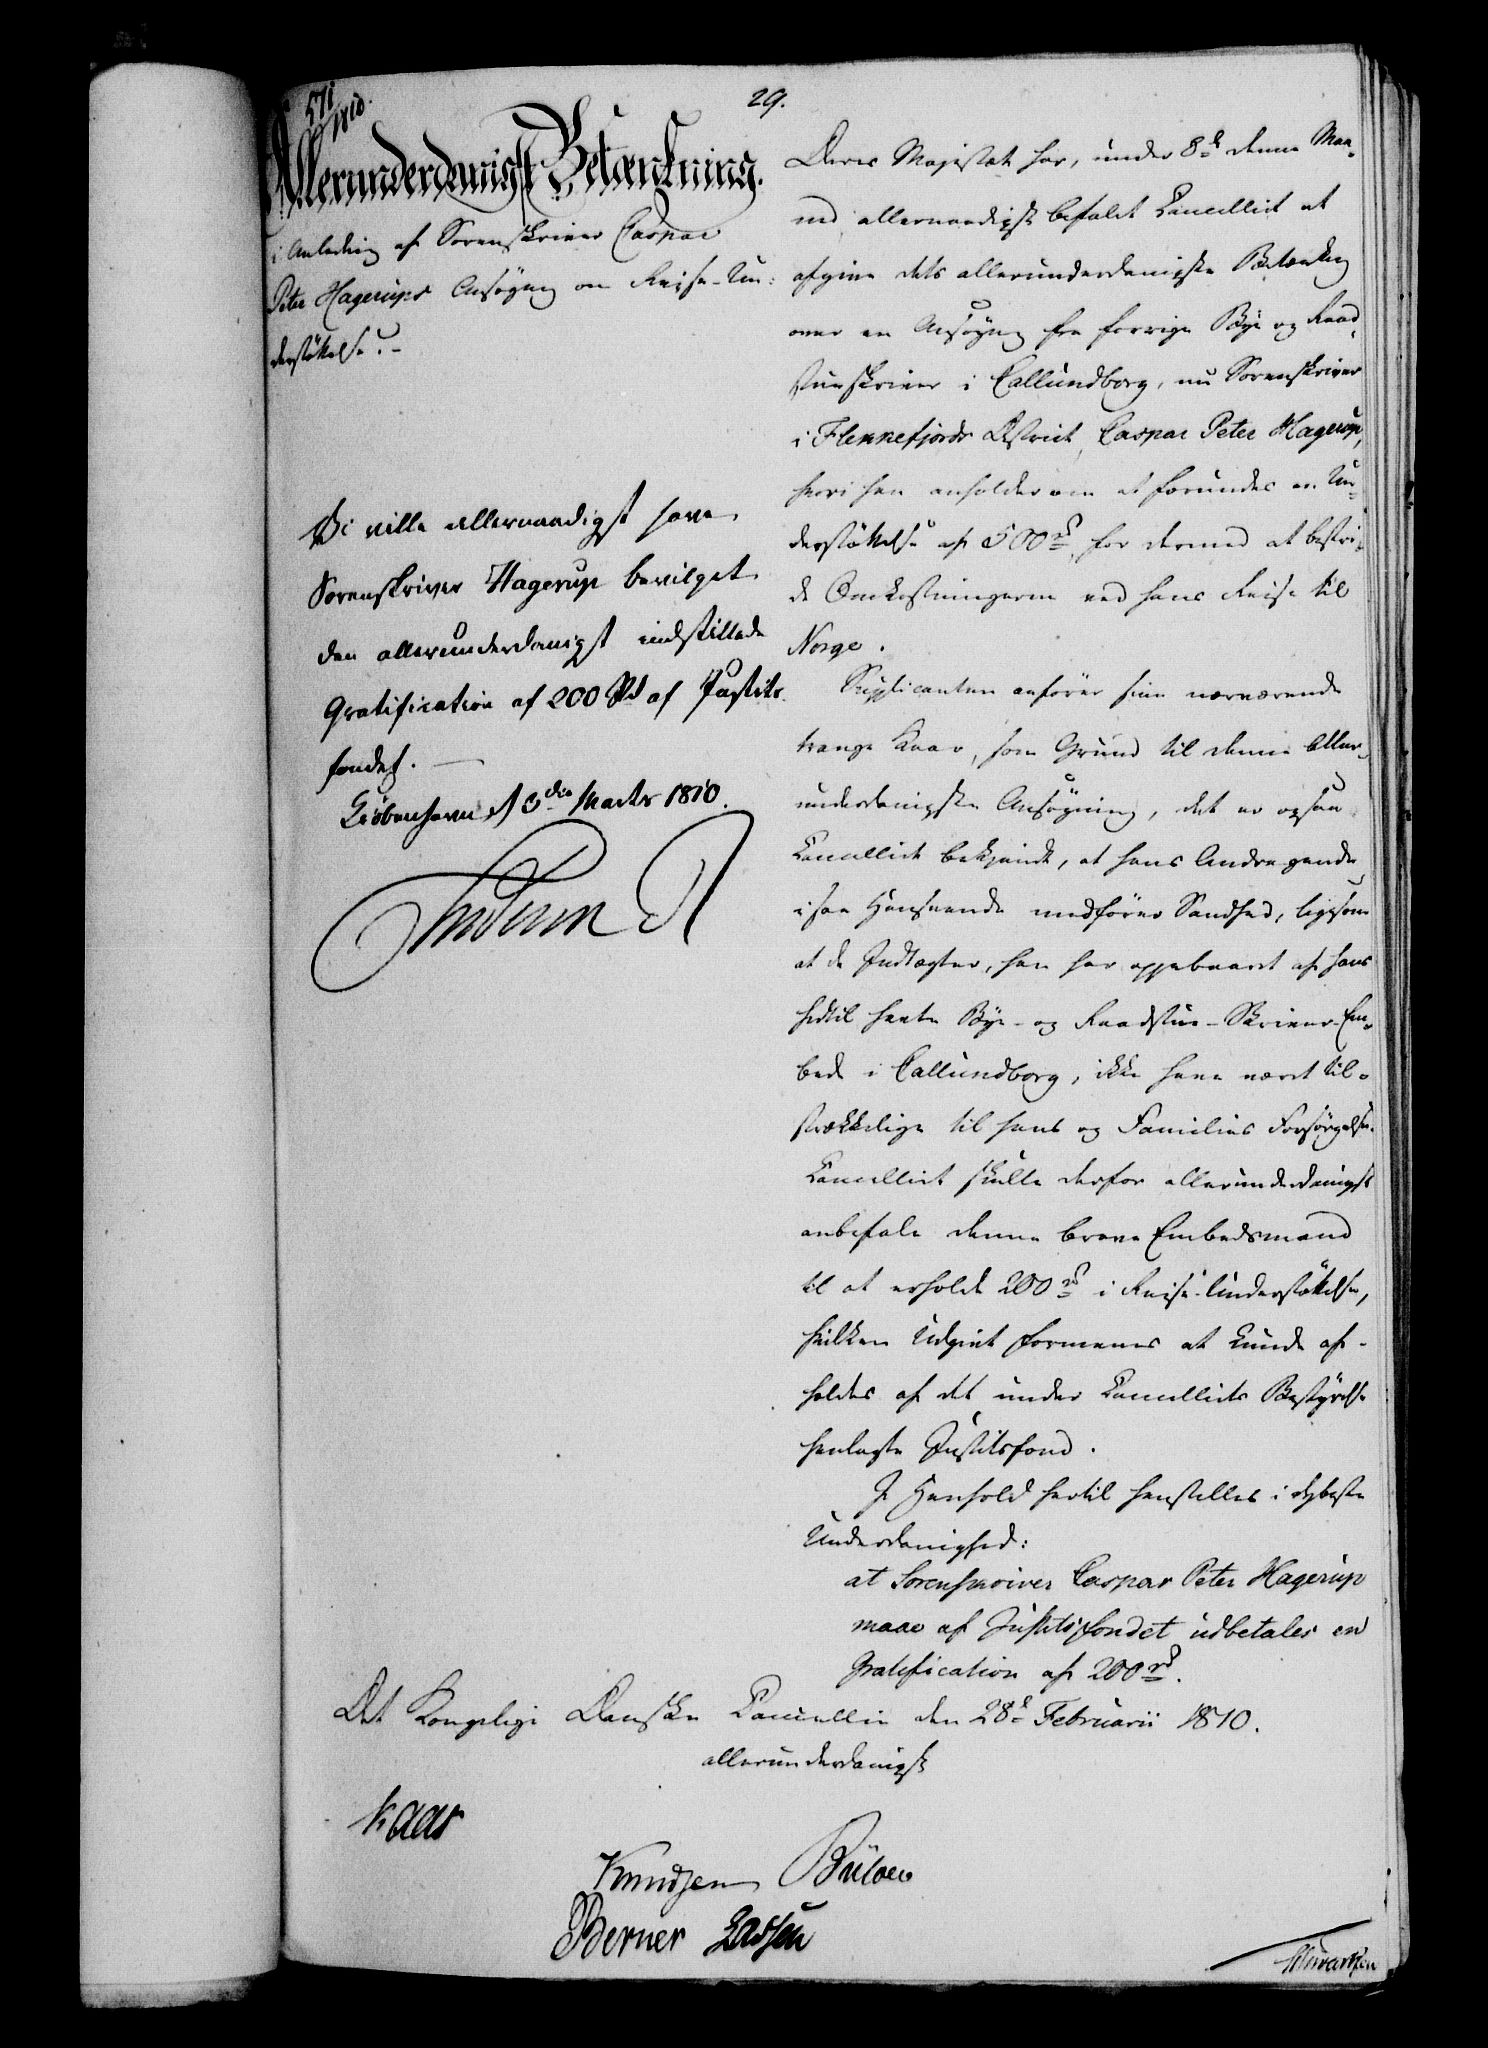 29.
571/1810.
Allerunderdanigst Betænkning.
i Anledng af Sorenskriver Caspar
Peter Hagerups Ansøgng om Reise-Un-
derstøttelse.-
Vi ville allernaadigst have
Sorenskriver Hagerup bevilget
den allerunderdanigst indstillede
Gratification af 200 Rd af Justits-
fondet.
Kiøbenhavn d 3die Marts 1810.
Frederik R
Deres Majestæt har, under 8de denne Maa-
ned allernaadigst befalet Cancelliet at
afgive dets allerunderdanigste Betænkng
over en Ansøgng fra forrige Bye og Raad-
stueskriver i Callundborg, nu Sorenskriver
i Flekkefjords District, Caspar Peter Hagerup,
hvori han anholder om at forundes en Un-
derstøttelse af 500 rd for dermed at bestri-
de Omkostningerne ved hans Reise til
Norge.
Supplicanten anfører sine nærværende
trange Kaar, som Grund til denne aller-
underdanigste Ansøgning, det er ogsaa
Cancelliet bekjendt, at hans Andragende
i saa Henseende medfører Sandhed, ligesom
at de Indtægter, han har oppebaaret af hans
hidtil havte Bye- og Raadstue-Skriver-Em-
bede i Callundborg, ikke have været til-
strækkelige til hans og Families Forsørgelse.
Cancelliet skulle derfor allerunderdanigst
anbefale denne brave Embedsmand
til at erholde 200 rd i Reise-Understøttelse,
hvilken Udgivt formenes at kunde af-
holdes af det under Cancelliets Bestyrelse
henlagte Justitsfond.
I Henhold hertil henstilles i dybeste
Underdanighed:
at Sorenskriver Caspar Peter Hagerup
maae af Justitsfondet udbetales en
Gratification af 200 rd.
Det Kongelige Danske Cancellie den 28de Februarii 1810.
allerunderdanigst
Kaas
Knudsen Bülow
Berner Lassen